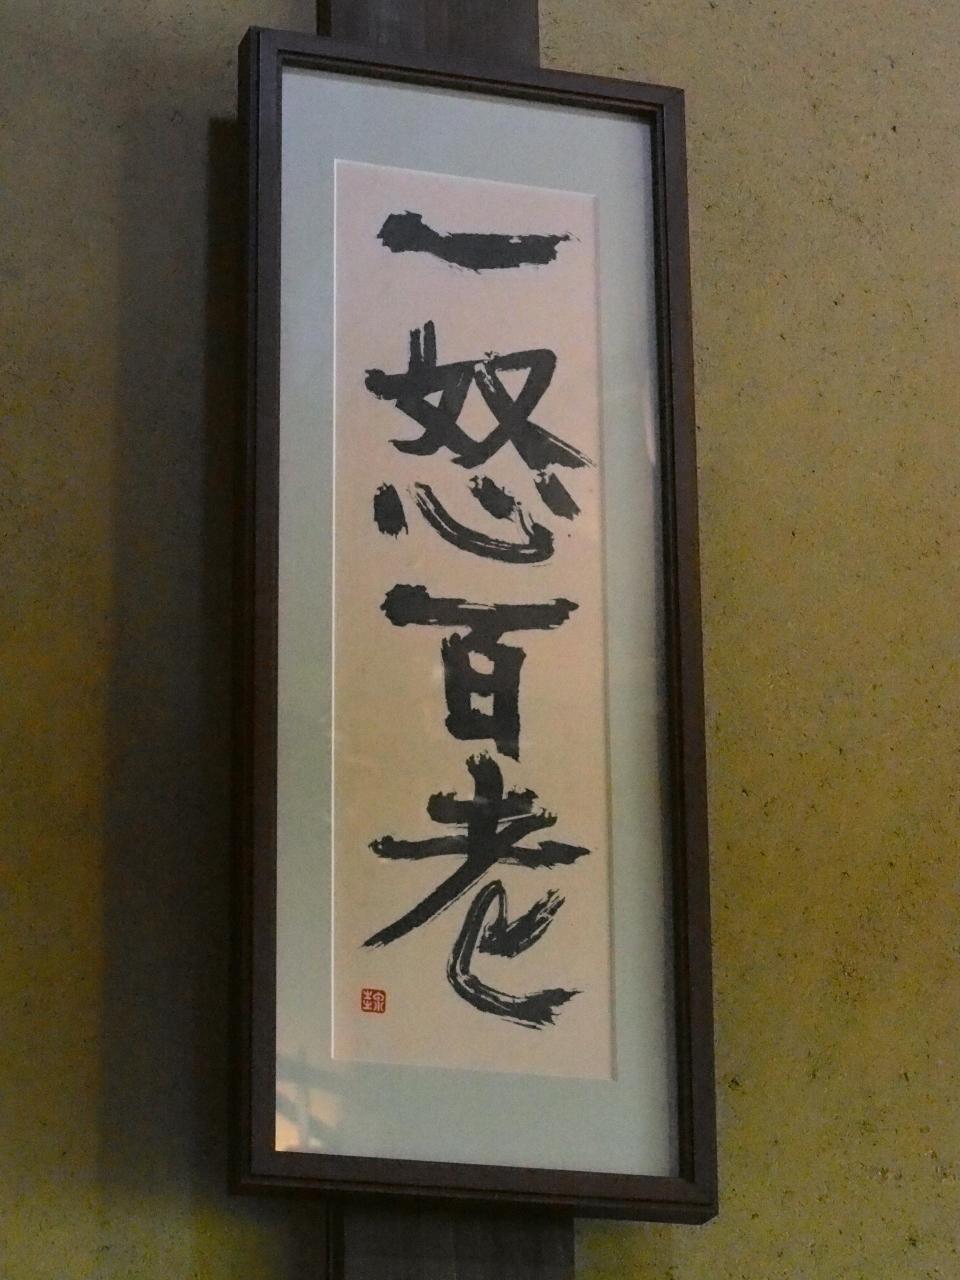 一怒百老